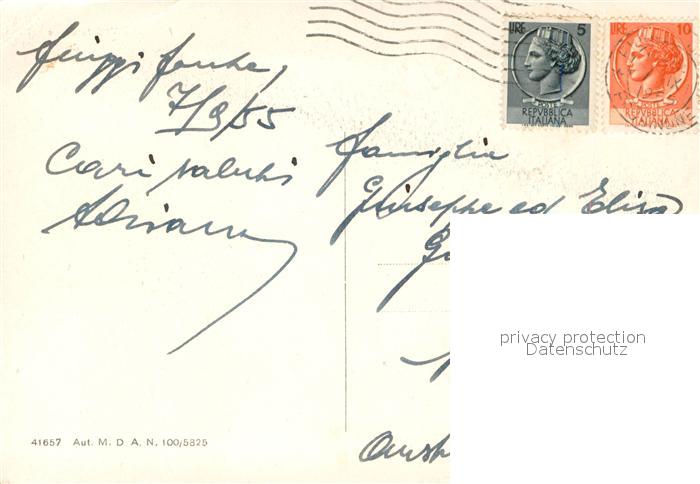 Fiuggi Fonte,
7/9/55
Cari saluti
Adriana
famiglia
Giuseppe ed Elisa
41657 Aut. M. D A. N. 100/5825
LIRE 5
POSTE
REPVBBLICA
ITALIANA
LIRE 10
POSTE
REPVBBLICA
ITALIANA
privacy protection
Datenschutz